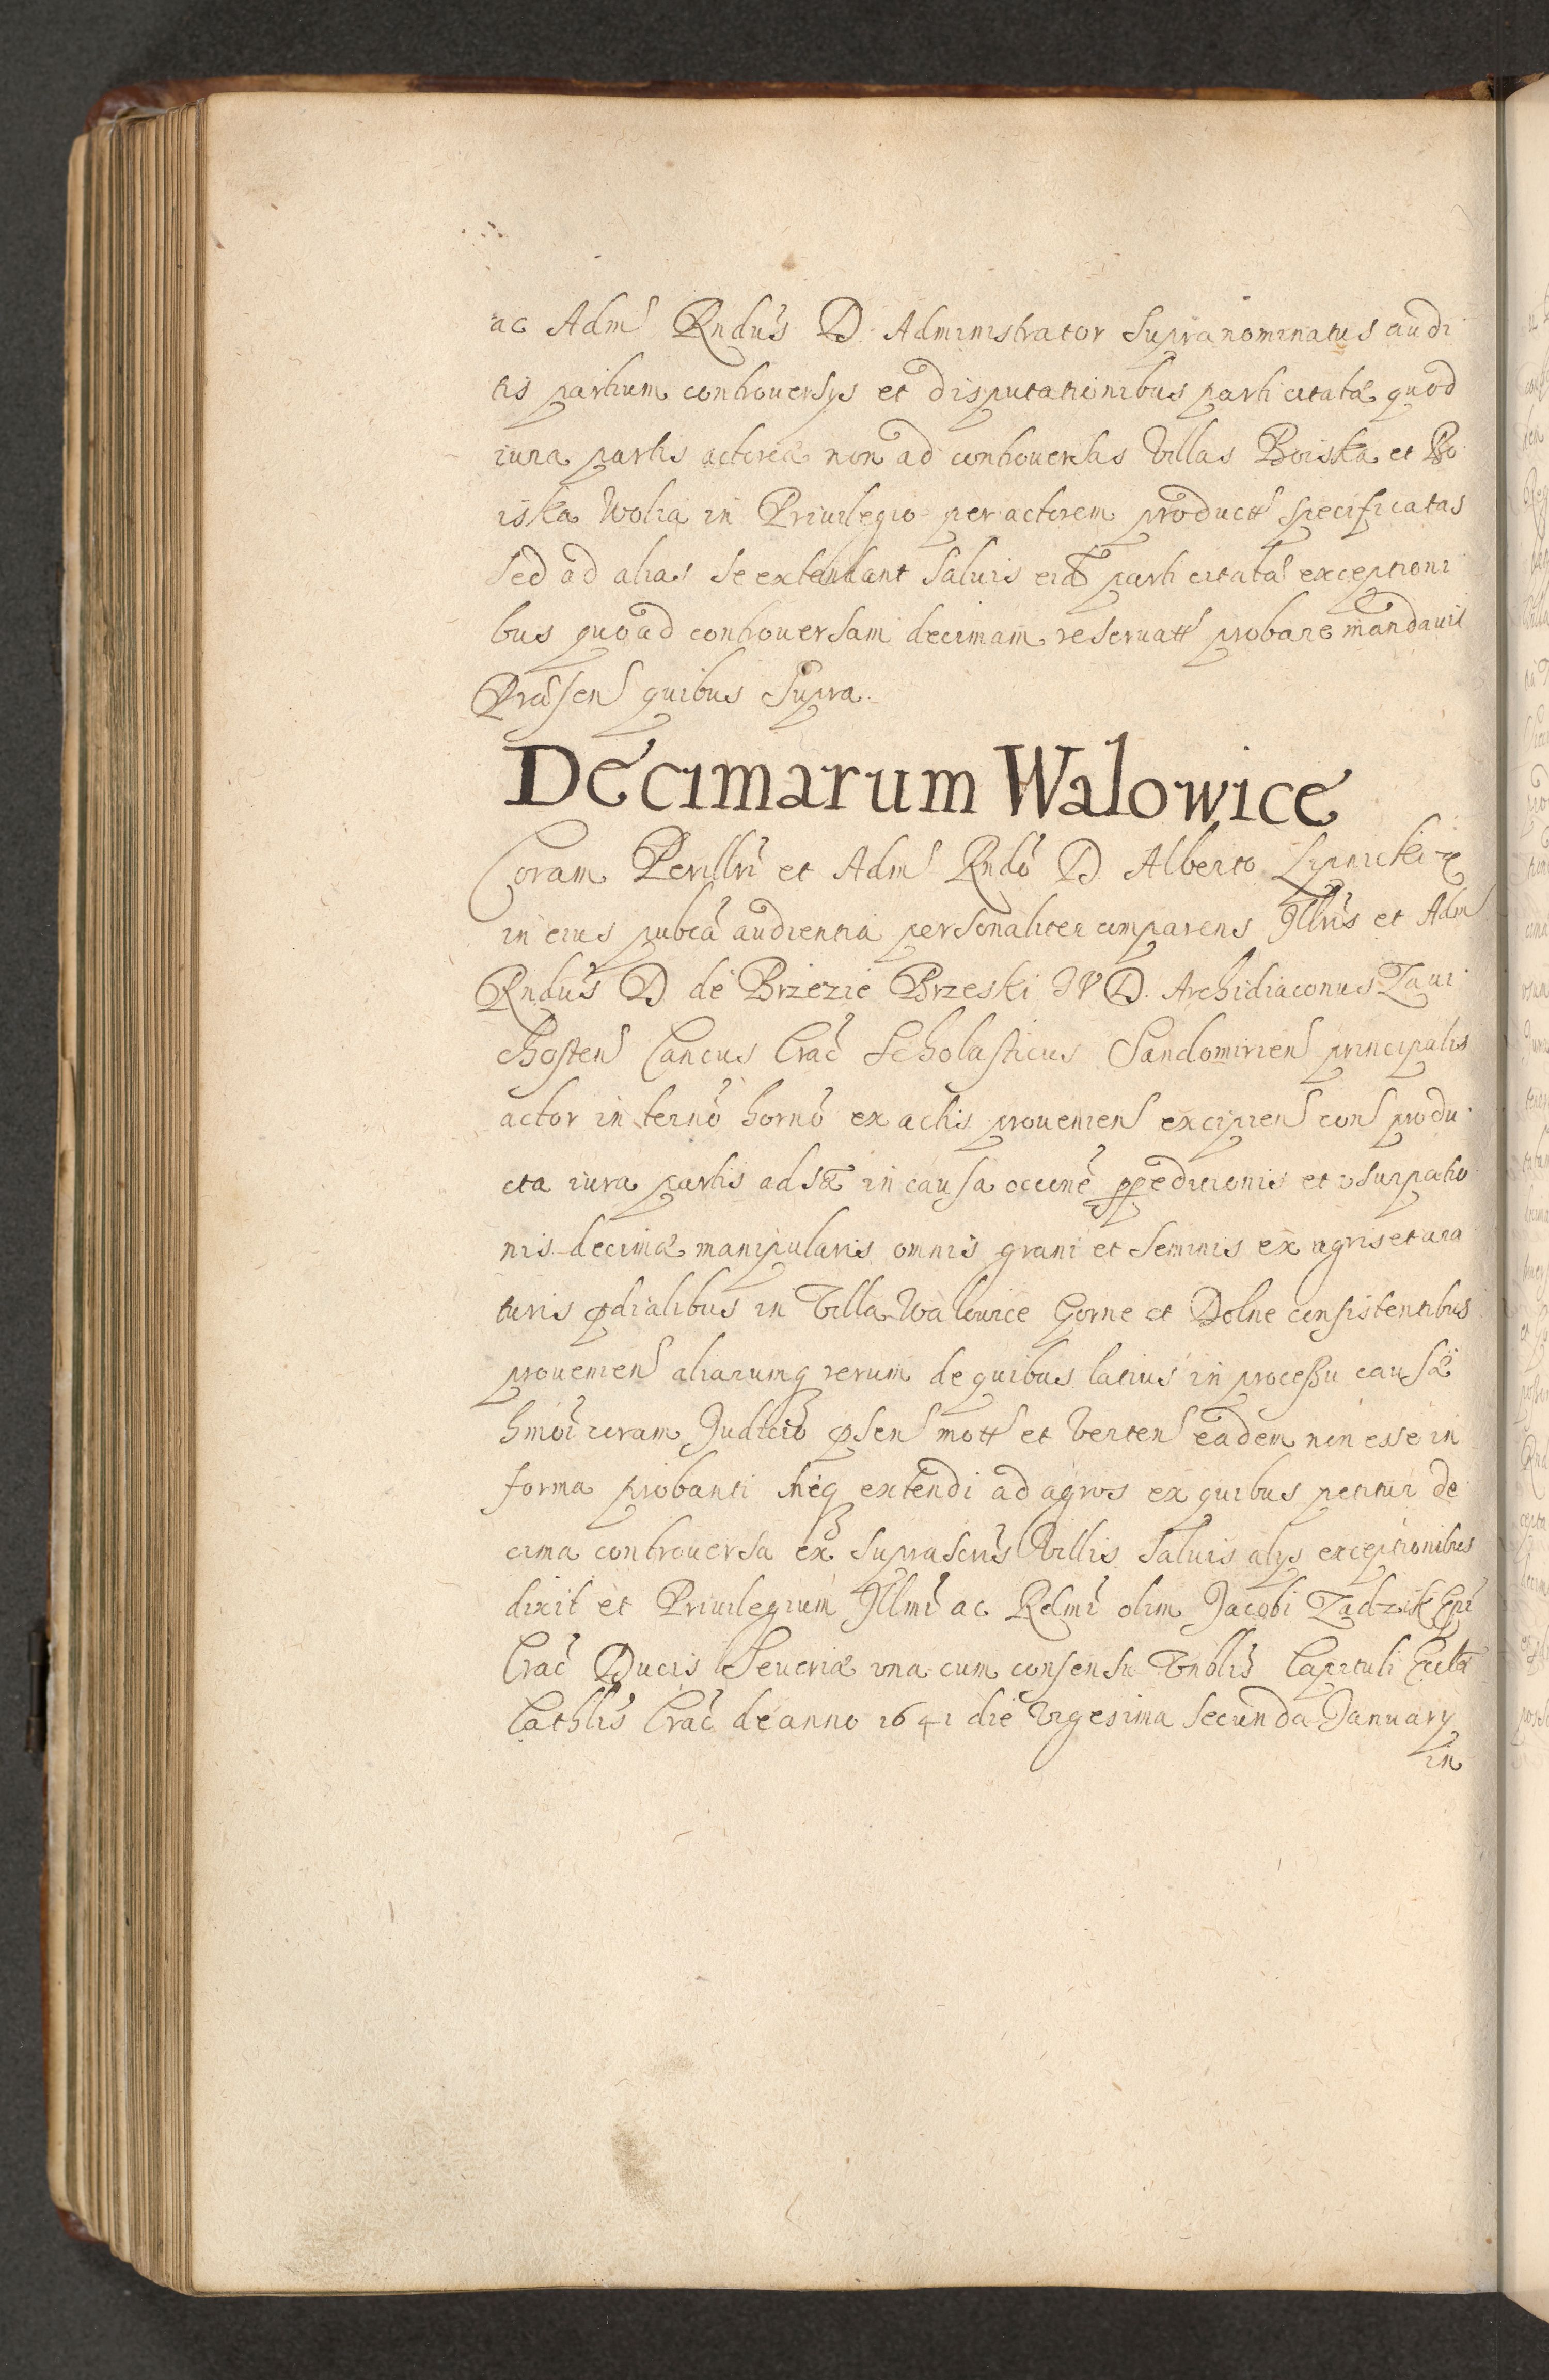 ac Adm Rndus D. Administrator supranominatus audi
tis partium controuersys et disputationibus parti citatæ quod
iura partis actoreæ non ad controuersas villas Boiska et Bo
iska Wolia in Priuilegio per actorem product specificatas
sed ad alias se extendant saluis eid parti citatæ exceptioni
bus quoad controuersam decimam reseruatt probare mandauit
Præsen quibus supra.
Decimarum Walowice
Coram Perillri et Adm Rndo D Alberto Lipnicki
in eius publca audientia personaliter comparens Illris et Adm
Rndus D de Brzezie Brzeski IVD. Archidiaconus Zaui
chosten Cancus Crac Scholasticus Sandomirien principalis
actor in terno horno ex actis prouenien excipien con produ
cta iura partis adsæ in causa occone ppeditionis et vsurpatio
nis decimæ manipularis omnis grani et seminis ex agris et ara
turis pdialibus in villa Walowice Gorne et Dolne consistentibus
prouenien aliarumq rerum de quibus latius in processu causæ
hmoi coram Judicio psen mott et verten eadem non esse in
forma probanti neq extendi ad agros ex quibus petitur de
cima controuersa ex suprascris villis saluis alys exceptionibus
dixit et Priuilegium Illmi ac Rdmi olim Jacobi Zadzik Epi
Crac Ducis Seueriæ vna cum consensu Vnblis Capituli Eccliæ
Cathlis Crac de anno 1641 die vigesima secunda January
in